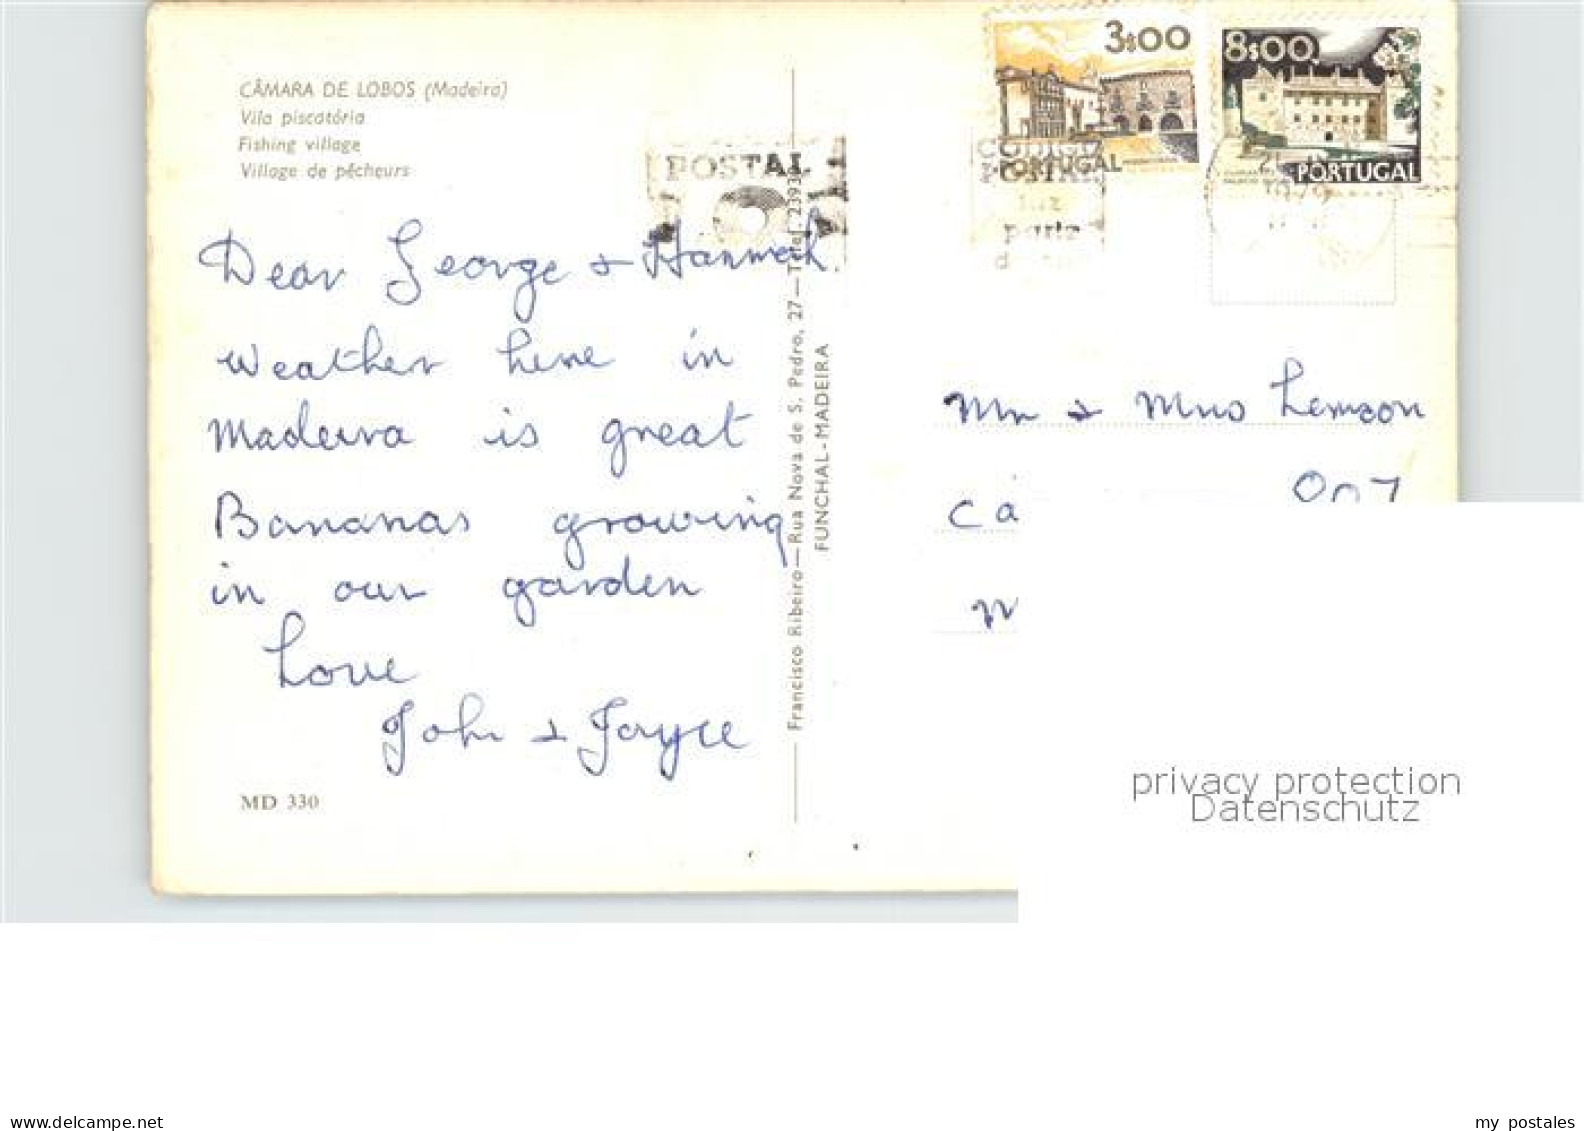 CÂMARA DE LOBOS (Madeira)
Vila piscatória
Fishing village
Village de pêcheurs
Dear George & Hannah
Weather here in
Madeira is great
Bananas growing
in our garden
Love
John & Joyce
MD 330
Francisco Ribeiro—Rua Nova de S. Pedro, 27—Telef. 2393
FUNCHAL-MADEIRA
POSTAL
CÓDIGO
POSTAL
parte
3$00
PORTUGAL
8$00
PORTUGAL
1979
Mr & Mrs Lemson
Ca
privacy protection
Datenschutz
www.delcampe.net
my postales